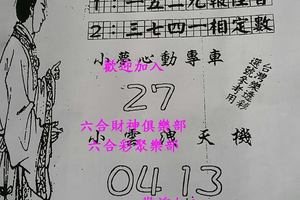 1:一五二九報佳音
2:三七四一相定數
小夢心動專車
歡迎加入
台灣樂透彩
選號參考用
27
六合財神俱樂部
小雲洩天機
六合彩聚樂部
04 13